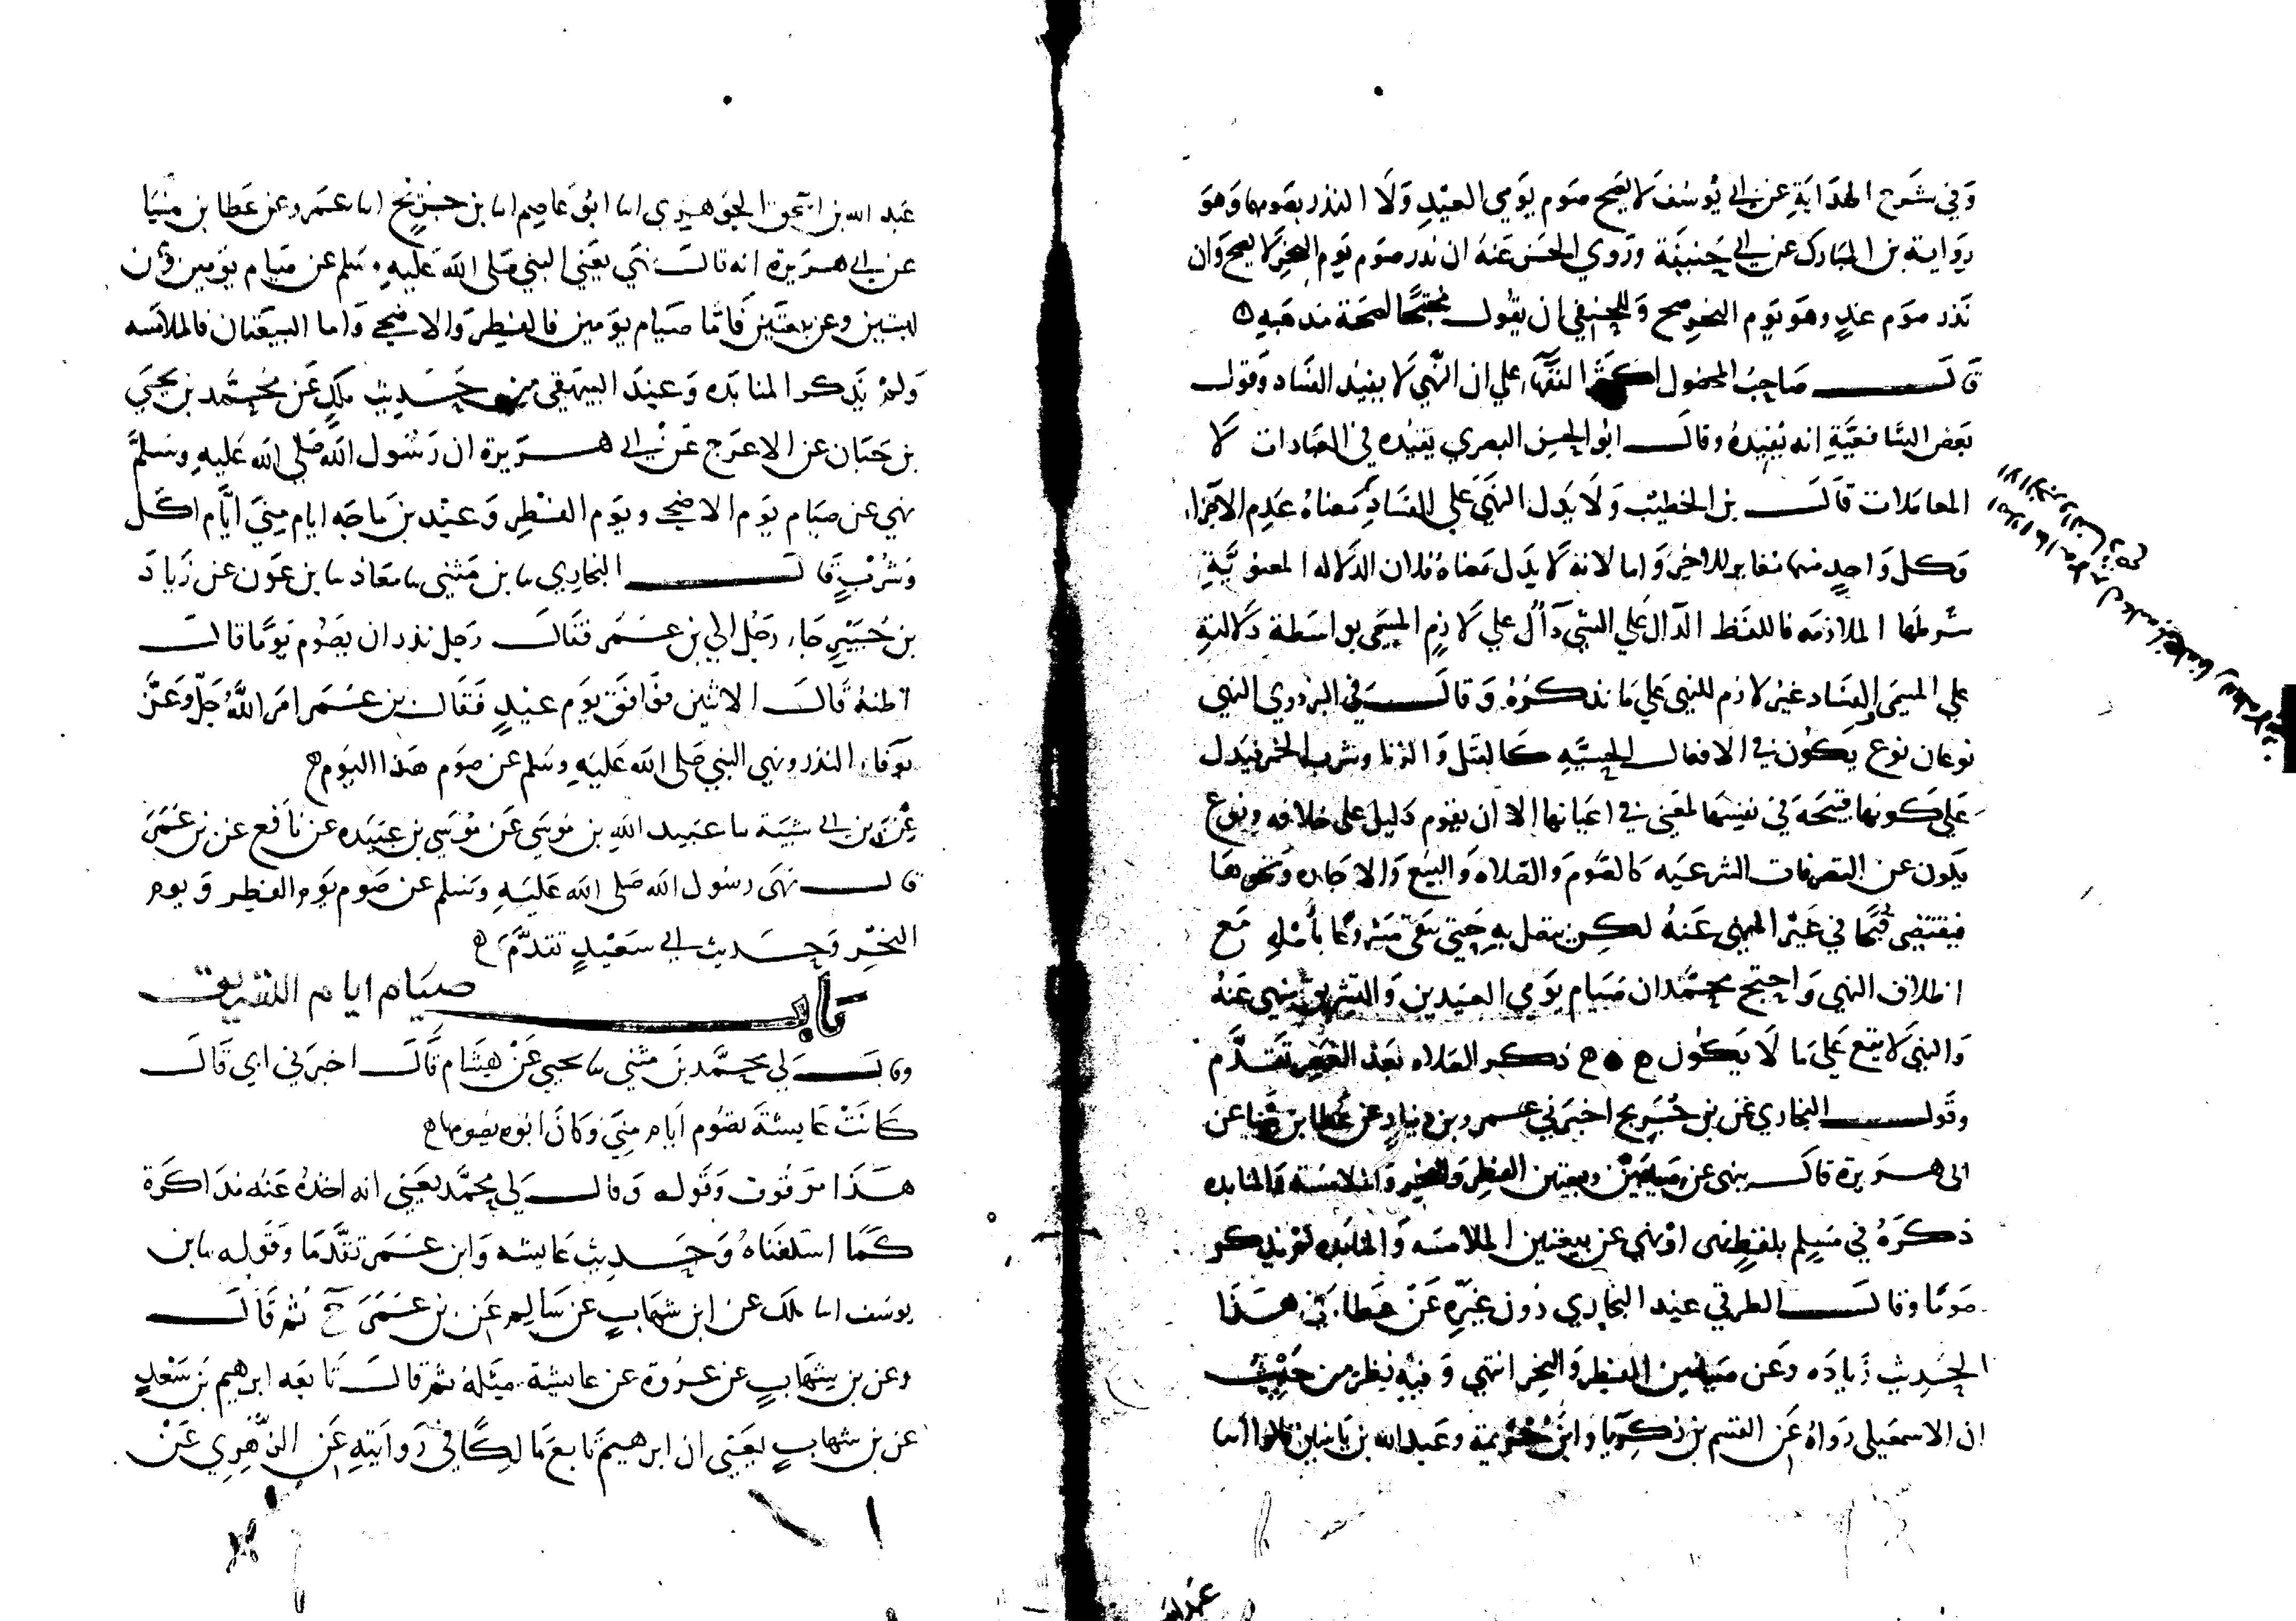 وفي شرح الهداية عن ابي يوسف لا يصح صوم يومي العيد ولا النذر بصومها وهو
رواية بن المبارك عن ابي حنيفة وروي الحسن عنه ان نذر صوم يوم النحر لا يصح وان
نذر صوم غد وهو يوم النحر صح وللحنفي ان يقول محتجا لصحة مذهبه
قال صاحب المحصول اكثر الفقهاء علي ان النهي لا يفيد الفساد وقول
بعض الشافعية انه يفيده وقال ابو الحسن البصري يفيده في العبادات لا
المعاملات قال بن الخطيب ولا يدل النهي علي الفساد معناه عدم الاجزاء
وكل واحد منها مغاير للاخر واما لانه لا يدل معناه فلان الدلاله المعنوية
شرطها الملازمه فاللفظ الدال علي الشي دال علي لازم المسمي بواسطة دلالته
علي المسمي والفساد غير لازم للنهي علي ما نذكره وقال في البزدوي النهي
نوعان نوع يكون في الافعال الحسيه كالقتل والزنا وشرب الخمر فيدل
علي كونها قبيحة في نفسها لمعني في اعيانها الا ان يقوم دليل علي خلافه ونوع
يكون عن التصرفات الشرعيه كالصوم والصلاه والبيع والاجاره ونحوها
فيقتضي قبحا في غير المنهي عنه لكن يتصل به حتي يبقي مشروعا باصله مع
اطلاق النهي واحتج محمد ان صيام يومي العيدين والتشريق منهي عنه
والنهي لا يقع علي ما لا يكون ه ه ذكر الصلاه بعد العصر تقدم
وقول البخاري عن بن جريج اخبرني عمرو بن دينار عن عطا بن مينا عن
ابي هريرة قال ينهي عن صيامين وبيعتين الفطر والنحر والملامسة والمنابده
ذكره في مسلم بلفظ نهي او نهي عن بيعتين الملامسه والمنابده لم يذكر
صوما وقال الطرقي عند البخاري دون غيره عن عطاء في هذا
الحديث زياده وعن صيامين الفطر والنحر انتهي وفيه نظر من حيث
ان الاسمعيلي رواه عن القسم بن زكريا وابن خزيمة وعبد الله بن ياسين قالوا انبا
عبد الله
عبد الله بن اسحق الجوهري انا ابو عاصم انا بن جريج انا عمرو عن عطا بن مينا
عن ابي هريرة انه قال نهي يعني النبي صلي الله عليه وسلم عن صيام يومين وعن
لبستين وعن بيعتين فاما صيام يومين فالفطر والاضحي واما البيعتان فالملامسه
ولم يذكر المنابده وعند البيهقي من حديث ملك عن محمد بن يحيي
بن حبان عن الاعرج عن ابي هريرة ان رسول الله صلي الله عليه وسلم
نهي عن صيام يوم الاضحي ويوم الفطر وعند بن ماجه ايام مني ايام اكل
وشرب قال البخاري نا بن مثني نا معاذ نا بن عون عن زياد
بن جبير جاء رجل الي بن عمر فقال رجل نذر ان يصوم يوما قال
اظنه قال الاثنين فوافق يوم عيد فقال بن عمر امر الله جل وعز
بوفاء النذر ونهي النبي صلي الله عليه وسلم عن صوم هذا اليوم ه
عن بن ابي شيبة نا عبيد الله بن موسي عن موسي بن عبيده عن نافع عن بن عمر
قال نهي رسول الله صلي الله عليه وسلم عن صوم يوم الفطر ويوم
النحر وحديث ابي سعيد تقدم ه
باب صيام ايام التشريق
وقال لي محمد بن مثني نا يحيي عن هشام قال اخبرني ابي قال
كانت عايشة تصوم ايام مني وكان ابوه يصومها ه
هذا موقوف وقوله وقال لي محمد يعني انه اخذه عنه مذاكرة
كما اسلفناه وحديث عايشه وابن عمر تقدما وقوله نا بن
يوسف انا ملك عن ابن شهاب عن سالم عن بن عمر ح ثم قال
وعن بن شهاب عن عروة عن عايشة مثله ثم قال تابعه ابرهيم بن سعد
عن بن شهاب يعني ان ابرهيم تابع مالكا في روايته عن الزهري عن